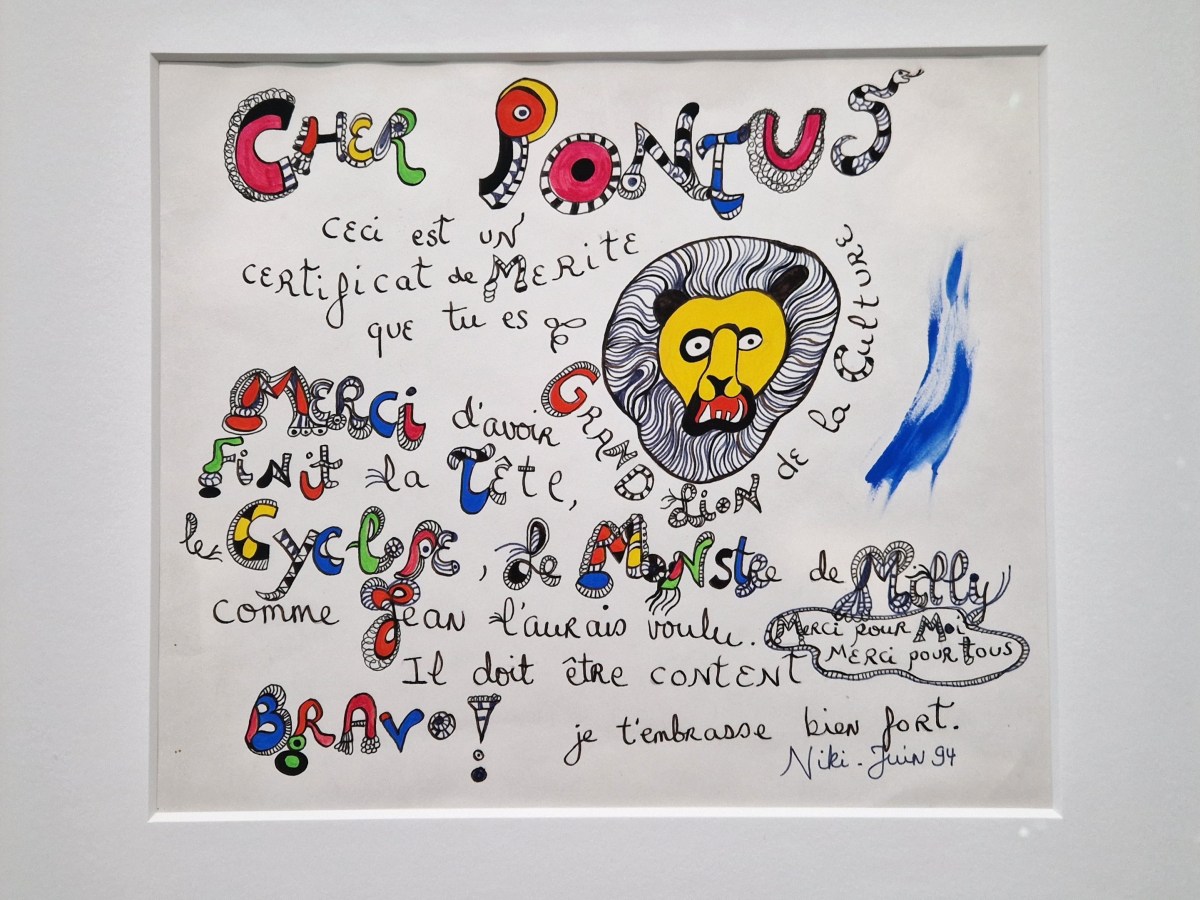 CHER PONTUS
ceci est UN
certificat de MERITE
que tu es
GRAND Lion de la Culture
MERCi d'avoir
Finit la Tête,
le Cyclope, Le Monstre de Milly
comme Jean l'aurais voulu.
Merci pour Moi
Merci pour tous
Il doit être content
BRAVO!
je t'embrasse bien fort.
Niki - Juin 94